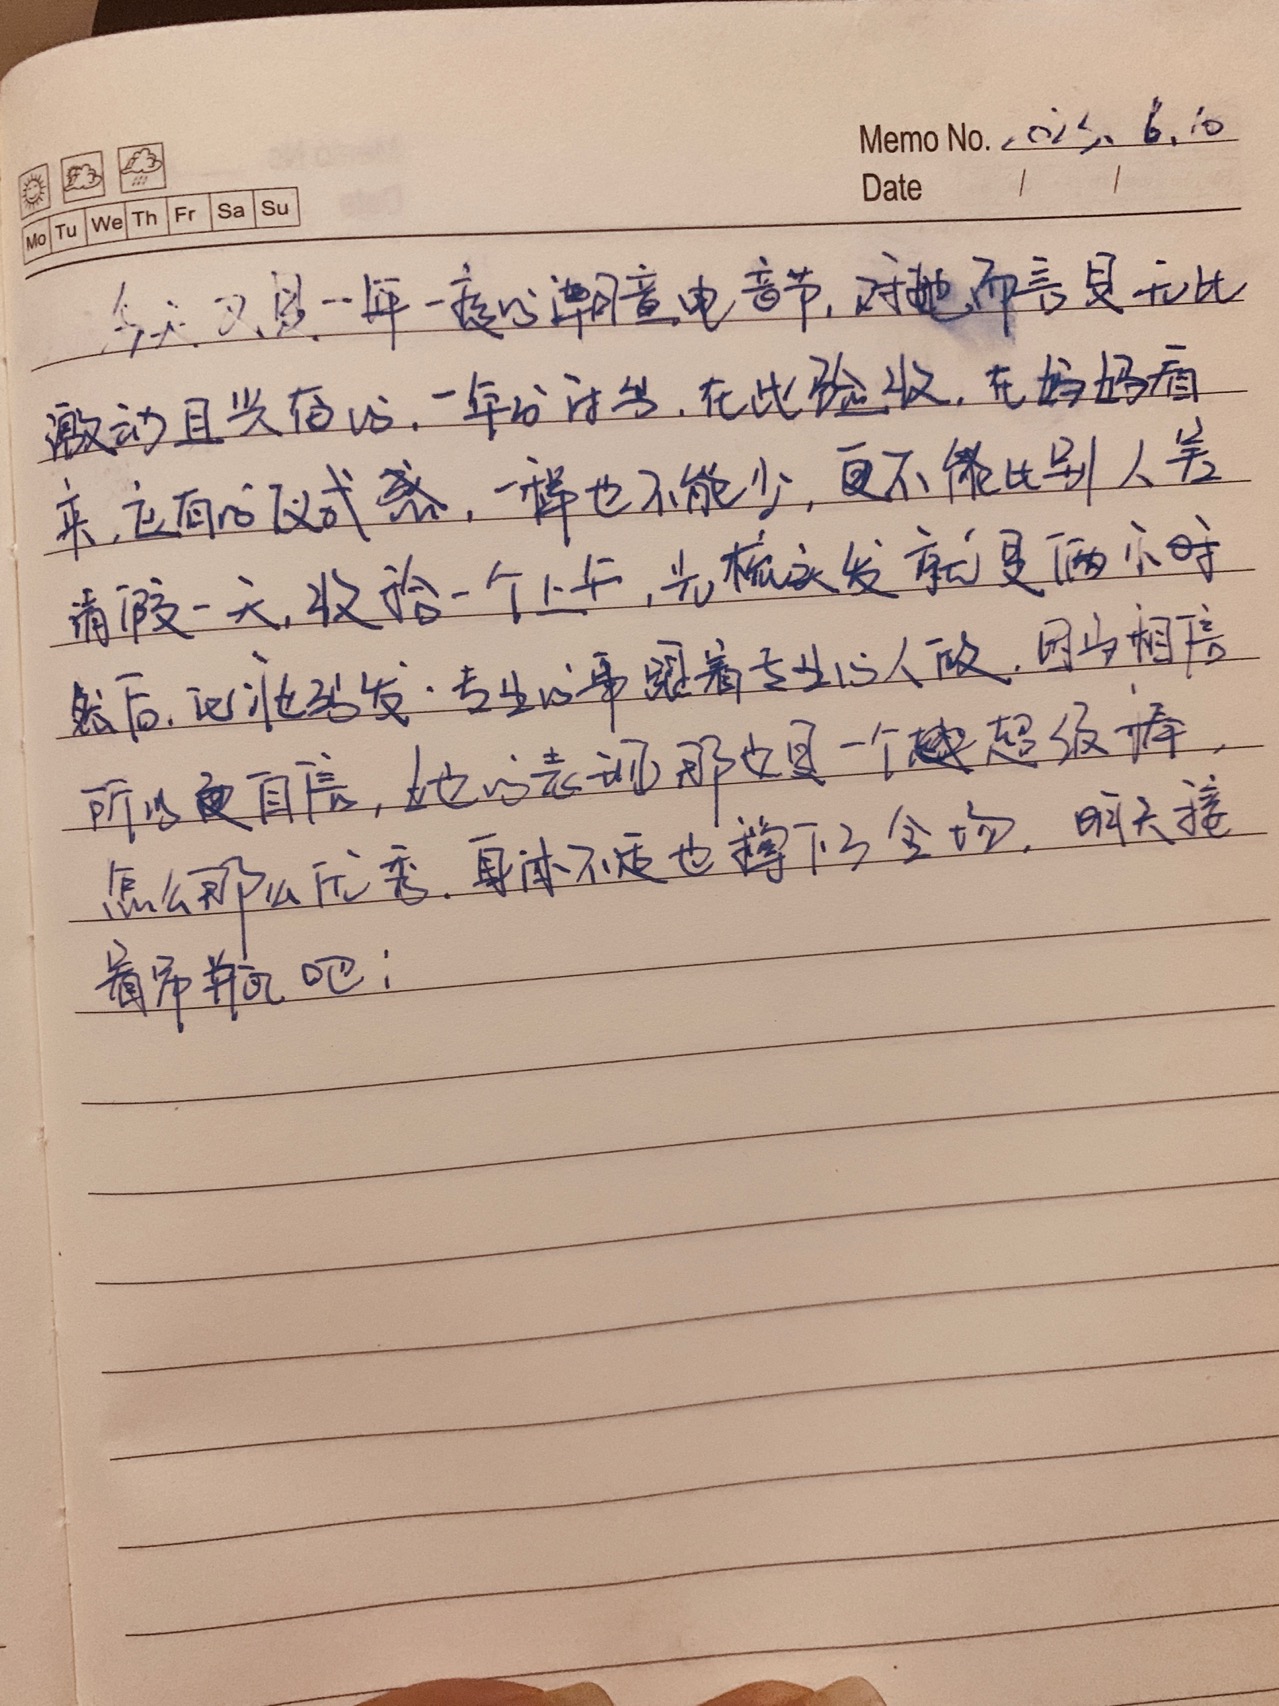 Memo No. 6.10
Date / /
Mo Tu We Th Fr Sa Su
今天又是一年一度的潮音电音节，对她而言是无比
激动且兴奋的，一年的付出，在此验收，在妈妈看
来，应有的仪式感，一样也不能少，更不能比别人差
请假一天，收拾一个上午，光梳头发就是俩小时
然后，化妆，专业的事跟着专业的人做，因为相信
所以更自信，她的表现那也是一个超级棒，
怎么那么优秀，身体不适也撑下了全场，明天接
着吊瓶吧；